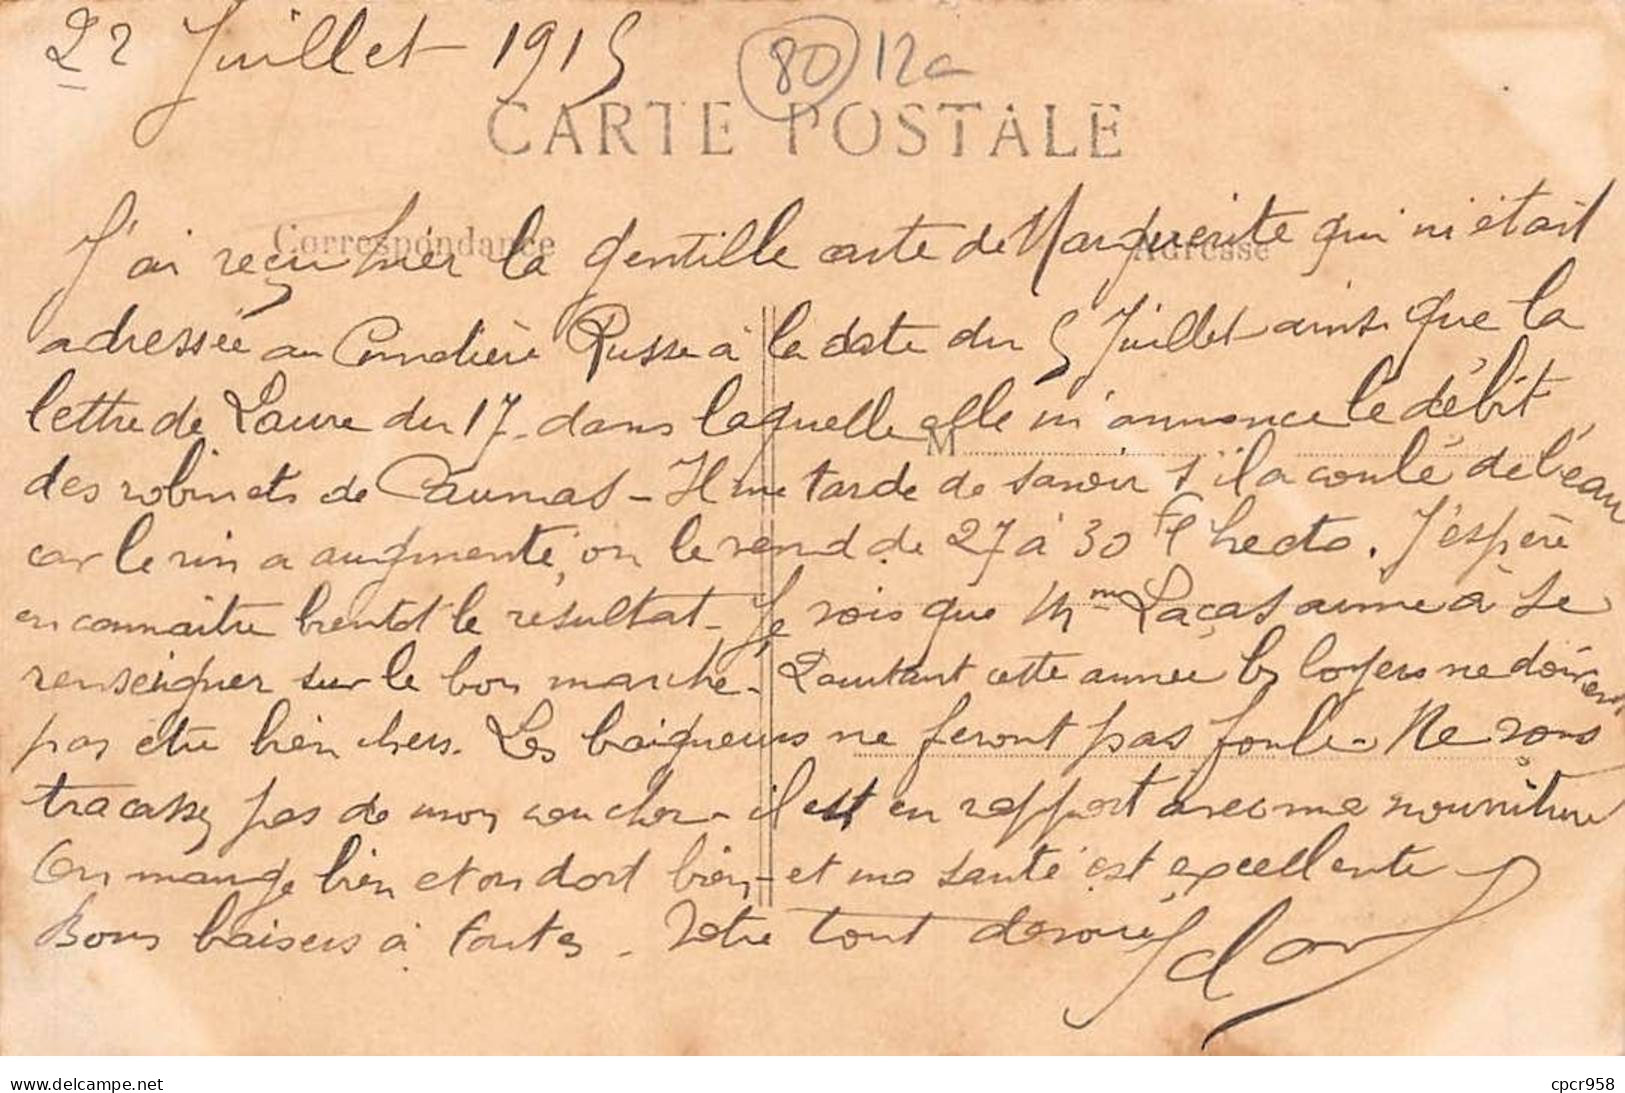 22 Juillet 1915
80 12c
CARTE POSTALE
Correspondance
Adresse
J'ai reçu hier la gentille carte de Marguerite qui m'était
adressée au Russe à la date du 5 Juillet ainsi que la
lettre de Laure du 17 - dans laquelle elle m'annonce le débit
M
des robinets de Caumas - Il me tarde de savoir s'il a coulé de l'eau
car le vin a augmenté, on le vend de 27 à 30 f l'hecto. J'espère
en connaître bientôt le résultat - Je vois que Mme Lacas aime à se
renseigner sur le bon marché - Pourtant cette année les loyers ne doivent
pas être bien chers. Les baigneurs ne feront pas foule - Ne vous
tracassez pas de mon coucher - il est en rapport avec ma nourriture
On mange bien et on dort bien - et ma santé est excellente
Bons baisers à toutes - Votre tout dévoué
delcampe.net
cpcr958